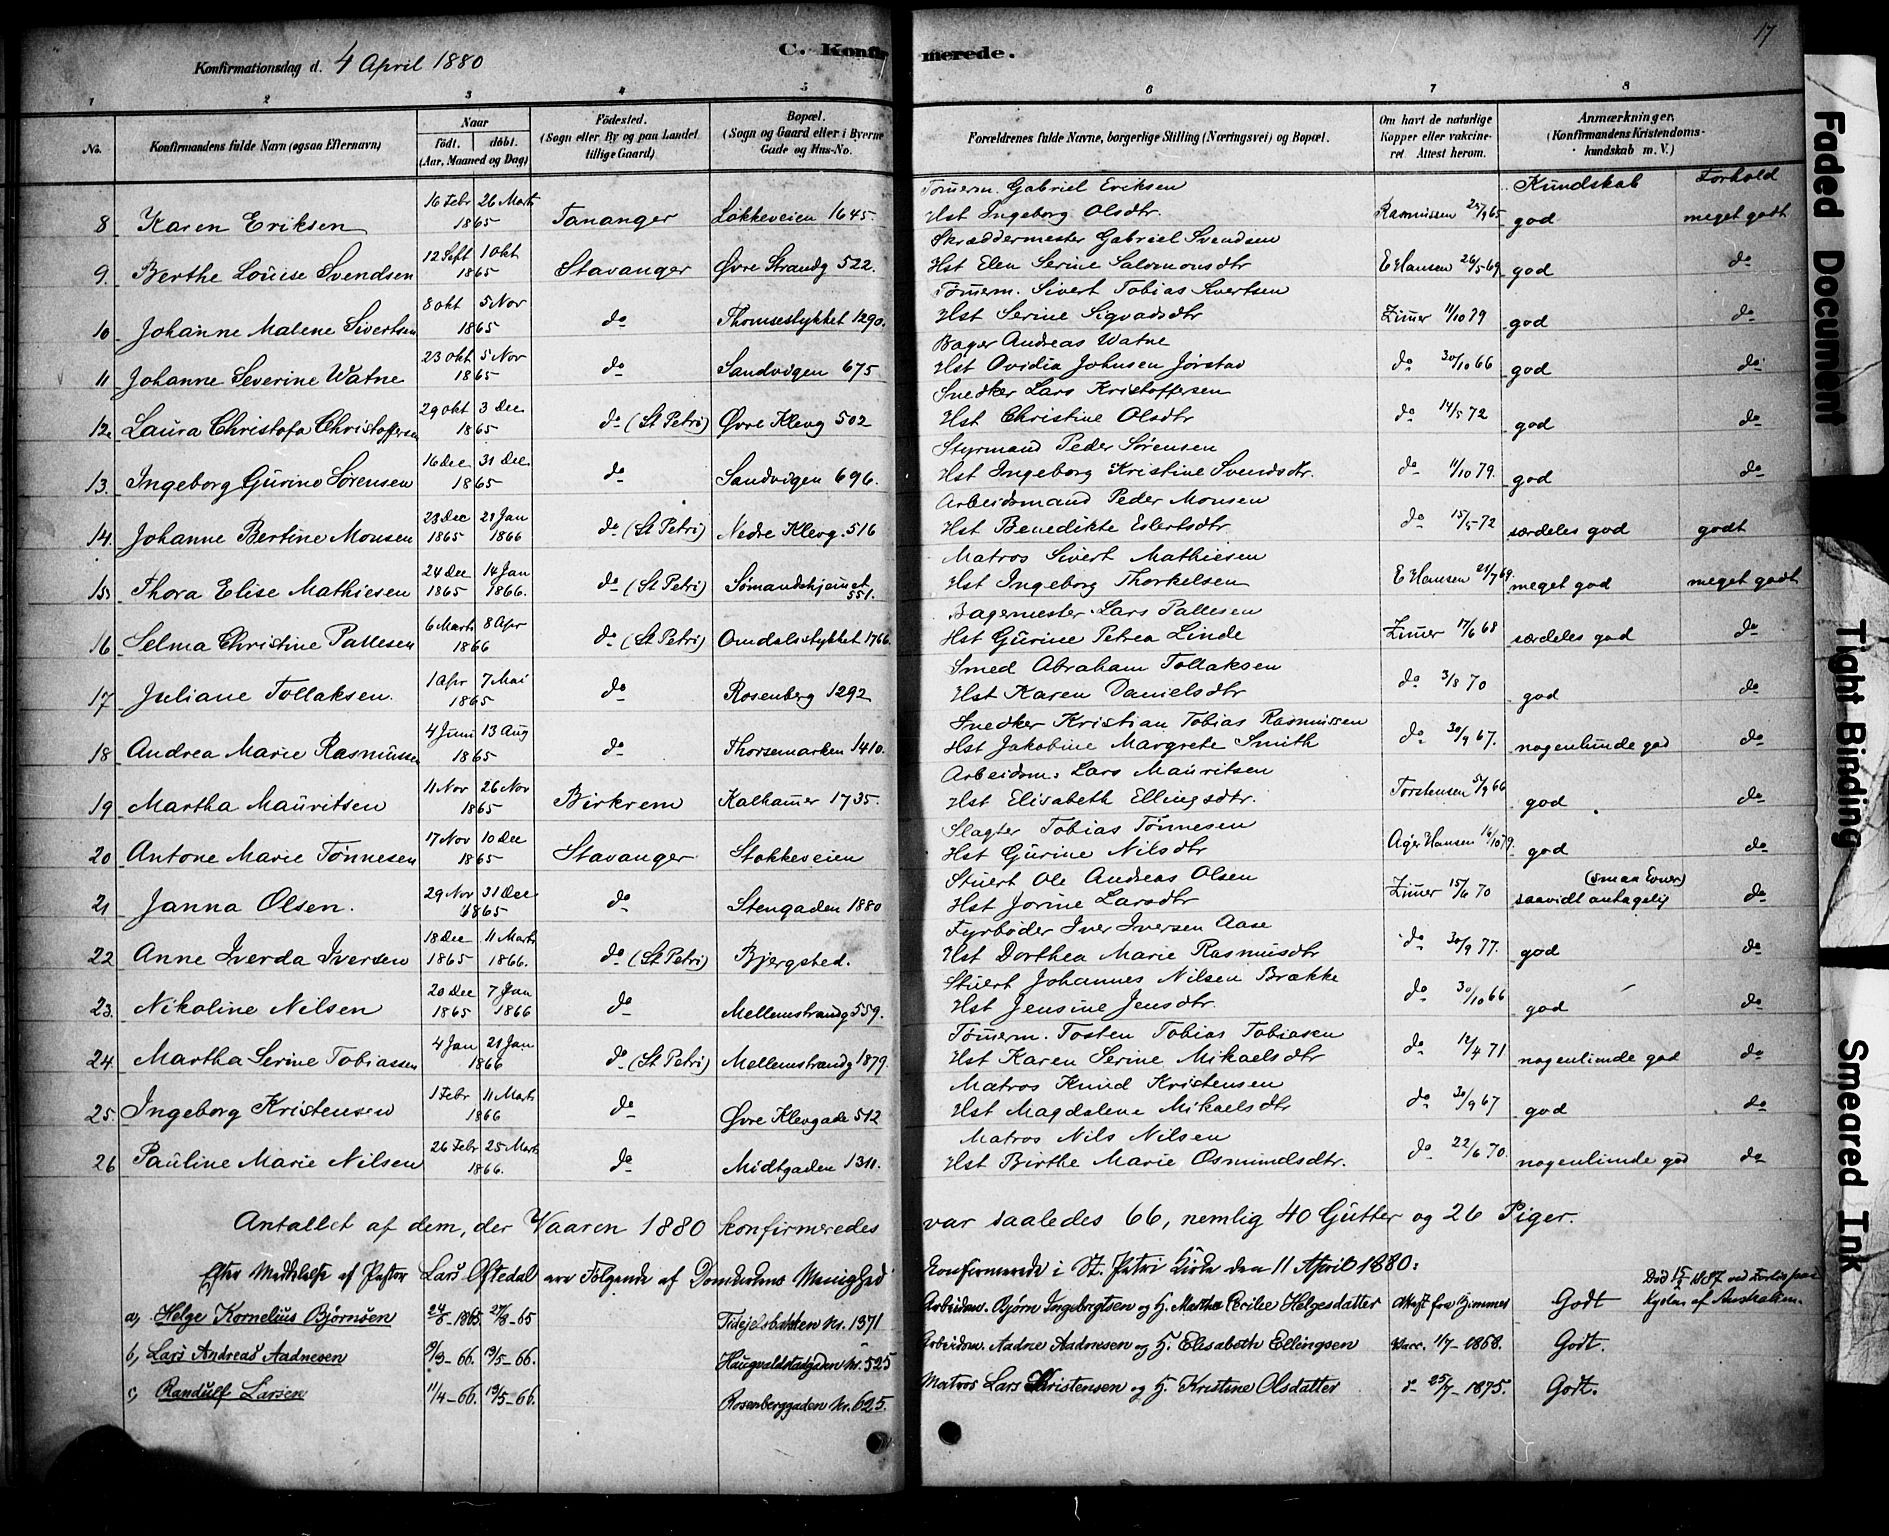 17
Konfirmationsdag d. 4 April 1880
C. Konfirmerede.
1 2 3 4 5 6 7 8
No. Konfirmandens fulde Navn (ogsaa Efternavn) Naar Født. døbt. (Aar, Maaned og Dag) Fødested. (Sogn eller By og paa Landet tillige Gaard) Bopæl. (Sogn og Gaard eller i Byerne Gade og Hus-No. Forældrenes fulde Navne, borgerlige Stilling (Næringsvei) og Bopæl. Om havt de naturlige Kopper eller vakcineret Attest herom. Anmærkninger. (Konfirmandens Kristendomskundskab m. V.)
Kundskab Forhold
8 Karen Eriksen 16 Febr 26 Marts 1865 Tananger Løkkeveien 1645. Tømerm. Gabriel Eriksen Hst Ingeborg Olsdtr. Rasmussen 25/9 65 god meget godt
9. Berthe Louise Svendsen 12 Sept 1 Okt 1865 Stavanger Øvre Strandg 522. Skræddermester Gabriel Svendsen Hst Elen Serine Salomonsdtr E Hansen 26/5 69 god do
10 Johanne Malene Sivertsen 8 Okt 5 Nov 1865 do Thomsestykket 1290. Tømerm. Sivert Tobias Sivertsen Hst Serine Sigvadsdtr Zimer 11/10 79 god do
11 Johanne Severine Watne 23 Okt 5 Nov 1865 do Sandvigen 675 Bager Andreas Watne Hst Ovidia Johnsen Jørstad do 30/10 66 god do
12. Laura Christofa Christoffersen 29 Okt 3 Dec 1865 do (St Petri) Øvre Klevg 502 Snedker Lars Kristoffersen Hst Christine Olsdtr do 14/5 72 god do
13. Ingeborg Gurine Sørensen 16 Dec 31 Dec 1865 do Sandvigen 696. Styrmand Peder Sørensen Hst Ingeborg Kristine Svendsdtr. do 11/10 79. god do
14. Johanne Bertine Monsen 23 Dec 1865 21 Jan 1866 do (St Petri) Nedre Klevg. 516 Arbeidsmand Peder Monsen Hst Benedikte Eilertsdtr do 15/5 72 særdeles god godt
15. Thora Elise Mathiesen 24 Dec 1865 14 Jan 1866. do (St Petri) Sømandshjemet 551. Matros Sivert Mathiesen Hst Ingeborg Thorkelsen E Hansen 21/7 69. meget god meget godt
16 Selma Christine Pallesen 6 Marts 8 Apr 1866 do (St Petri) Omdalsstykket 1766. Bagermester Lars Pallesen Hst Gurine Petrea Linde Zimer 17/6 68 særdeles god do
17 Juliane Tollaksen. 1 Apr 7 Mai 1865 do Rosenberg 1292 Smed Abraham Tollaksen Hst Karen Danielsdtr do 3/8 70 god do
18 Andrea Marie Rasmussen 4 Juni 13 Aug 1865 do Thorsemarken 1410. Snedker Kristian Tobias Rasmussen Hst Jakobine Margrete Smith do 30/9 67. nogenlunde god do
19 Martha Mauritsen 11 Nov 26 Nov 1865 Birkrem Kalhamer 1735. Arbeidsm: Lars Mauritsen Hst Elisabeth Ellingsdtr. Torstensen 5/9 66 god do
20 Antone Marie Tønnesen 17 Nov 10 Dec 1865 Stavanger Stokkeveien Slagter Tobias Tønnesen Hst Gurine Nilsdtr Ager Hansen 14/10 79. god do
21 Janna Olsen. 29 Nov 31 Dec 1865 do Stengaden 1880 Stuert Ole Andreas Olsen Hst Jorine Larsdtr Zimer 15/6 70 (smaa Evner) saavidt antagelig do
22 Anne Iverda Iversen 18 Dec 1865 11 Marts 1866. do (St Petri) Bjergsted. Fyrbøder Iver Iversen Aase Hst Dorthea Marie Rasmusdtr do 30/9 77. god do
23. Nikoline Nilsen 20 Dec 1865 7 Jan 1866 do Mellemstrandg 559. Stuert Johannes Nilsen Brække Hst Jensine Jensdtr. do 30/10 66 god do
24. Martha Serine Tobiassen 4 Jan 21 Jan 1866 do (St Petri) Mellemstrandg 1879. Tømerm. Tosten Tobias Tobiasen Hst Karen Serine Mikaelsdtr do 12/4 71 nogenlunde god do
25. Ingeborg Kristensen 1 Febr 11 Marts 1866 do Øvre Klevgade 512 Matros Knud Kristensen Hst Magdalene Mikaelsdtr do 30/9 67 god do
26 Pauline Marie Nilsen 26 Febr 25 Marts 1866. do Midtgaden 1311. Matros Nils Nilsen Hst Birthe Marie Osmundsdtr. do 22/6 70. nogenlunde god do
Antallet af dem, der Vaaren 1880 konfirmeredes var saaledes 66, nemlig 40 Gutter og 26 Piger.
Efter Meddelelse af Pastor Lars Oftedal ere Følgende af Domkirkens Menighed Konfirmerede i St. Petri Kirke den 11 April 1880:
a, Helge Kornelius Bjørnsen 24/8-1865 27/8-65 Nr. 1371 Arbeidsm. Bjørn Ingebrigtsen og H. Martha Cecilie Helgesdatter Attest fra Godt Død ved af Australien.
b, Lars Andreas Aadnesen 9/3-66. 19/5-66. Haugvaldstadgaden Nr. 525 Arbeidsm. Aadne Aadnesen og H. Elisabeth Ellingsen Vacc. 1/7-1868. Godt.
c, Randulf Larsen 11/4-66. 19/5-66. Rosenberggaden Nr. 625. Matros Lars Christensen og H. Kristine Olsdatter d- 25/7-1875. Godt.
Faded Document
Tight Binding
Smeared Ink